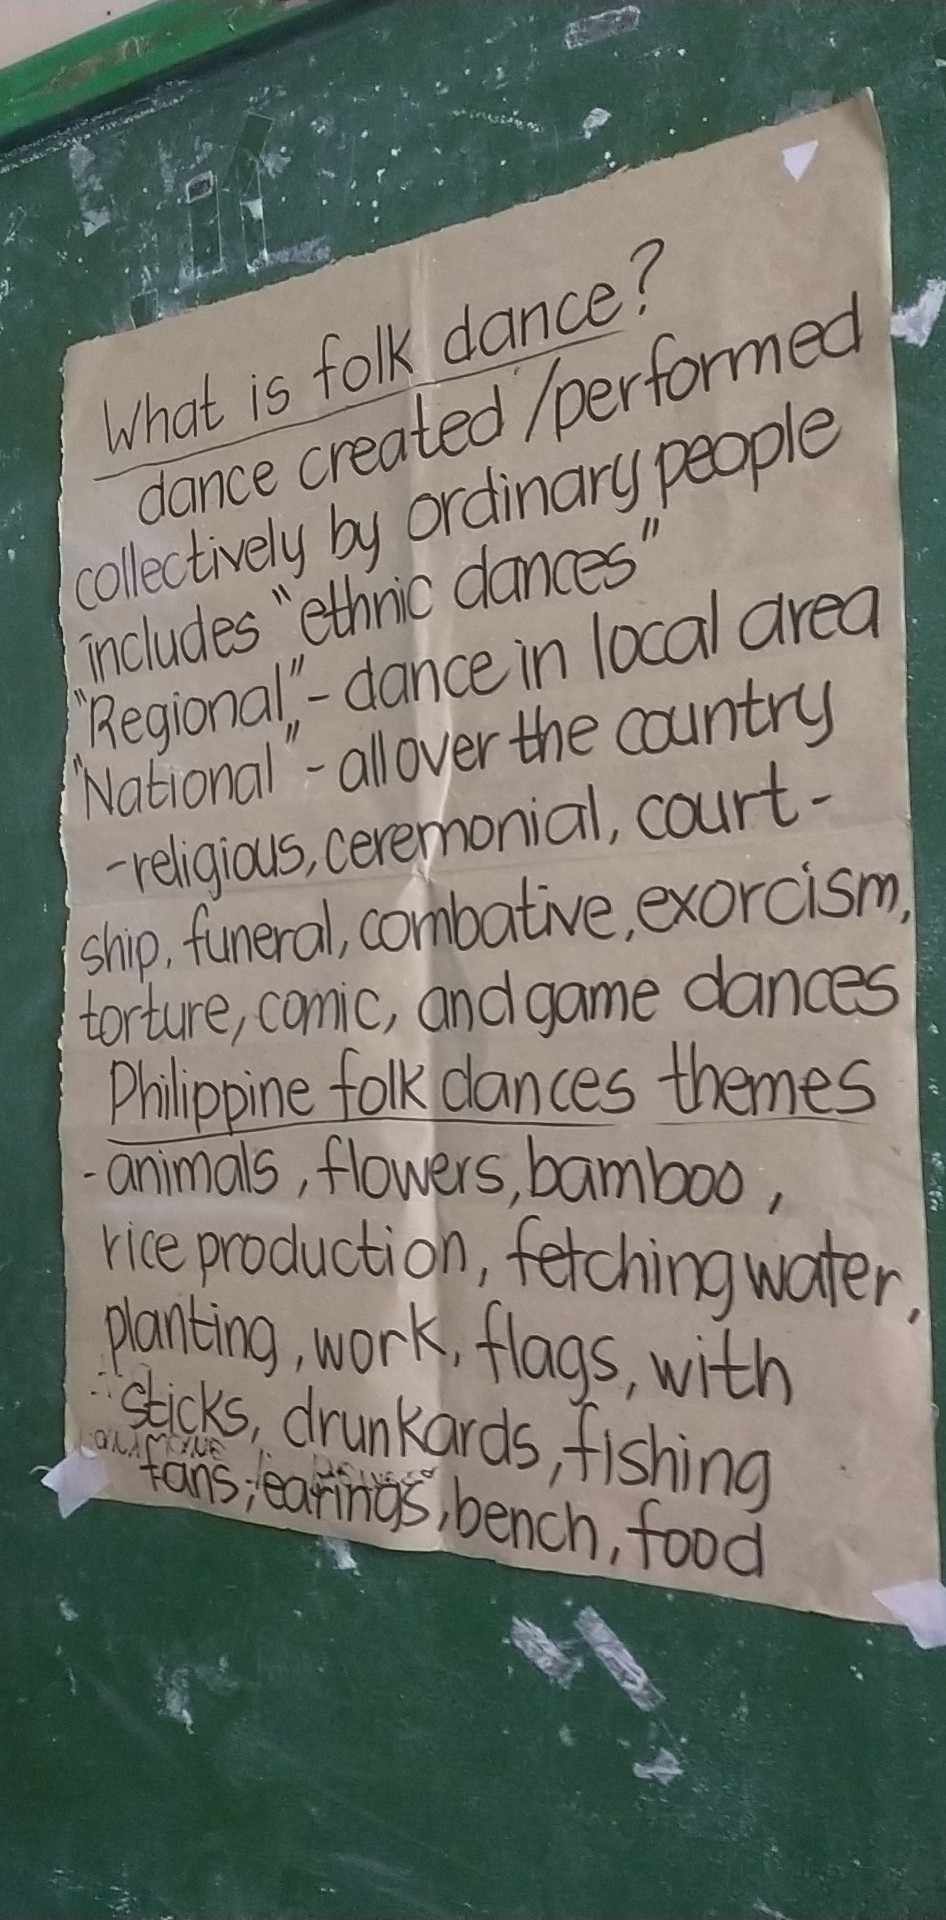 What is folk dance?
dance created/performed
collectively by ordinary people
includes "ethnic dances"
"Regional" - dance in local area
"National" - all over the country
-religious, ceremonial, court-
ship, funeral, combative, exorcism,
torture, comic, and game dances
Philippine folk dances themes
-animals, flowers, bamboo,
rice production, fetching water,
planting, work, flags, with
sticks, drunkards, fishing
fans, earings, bench, food